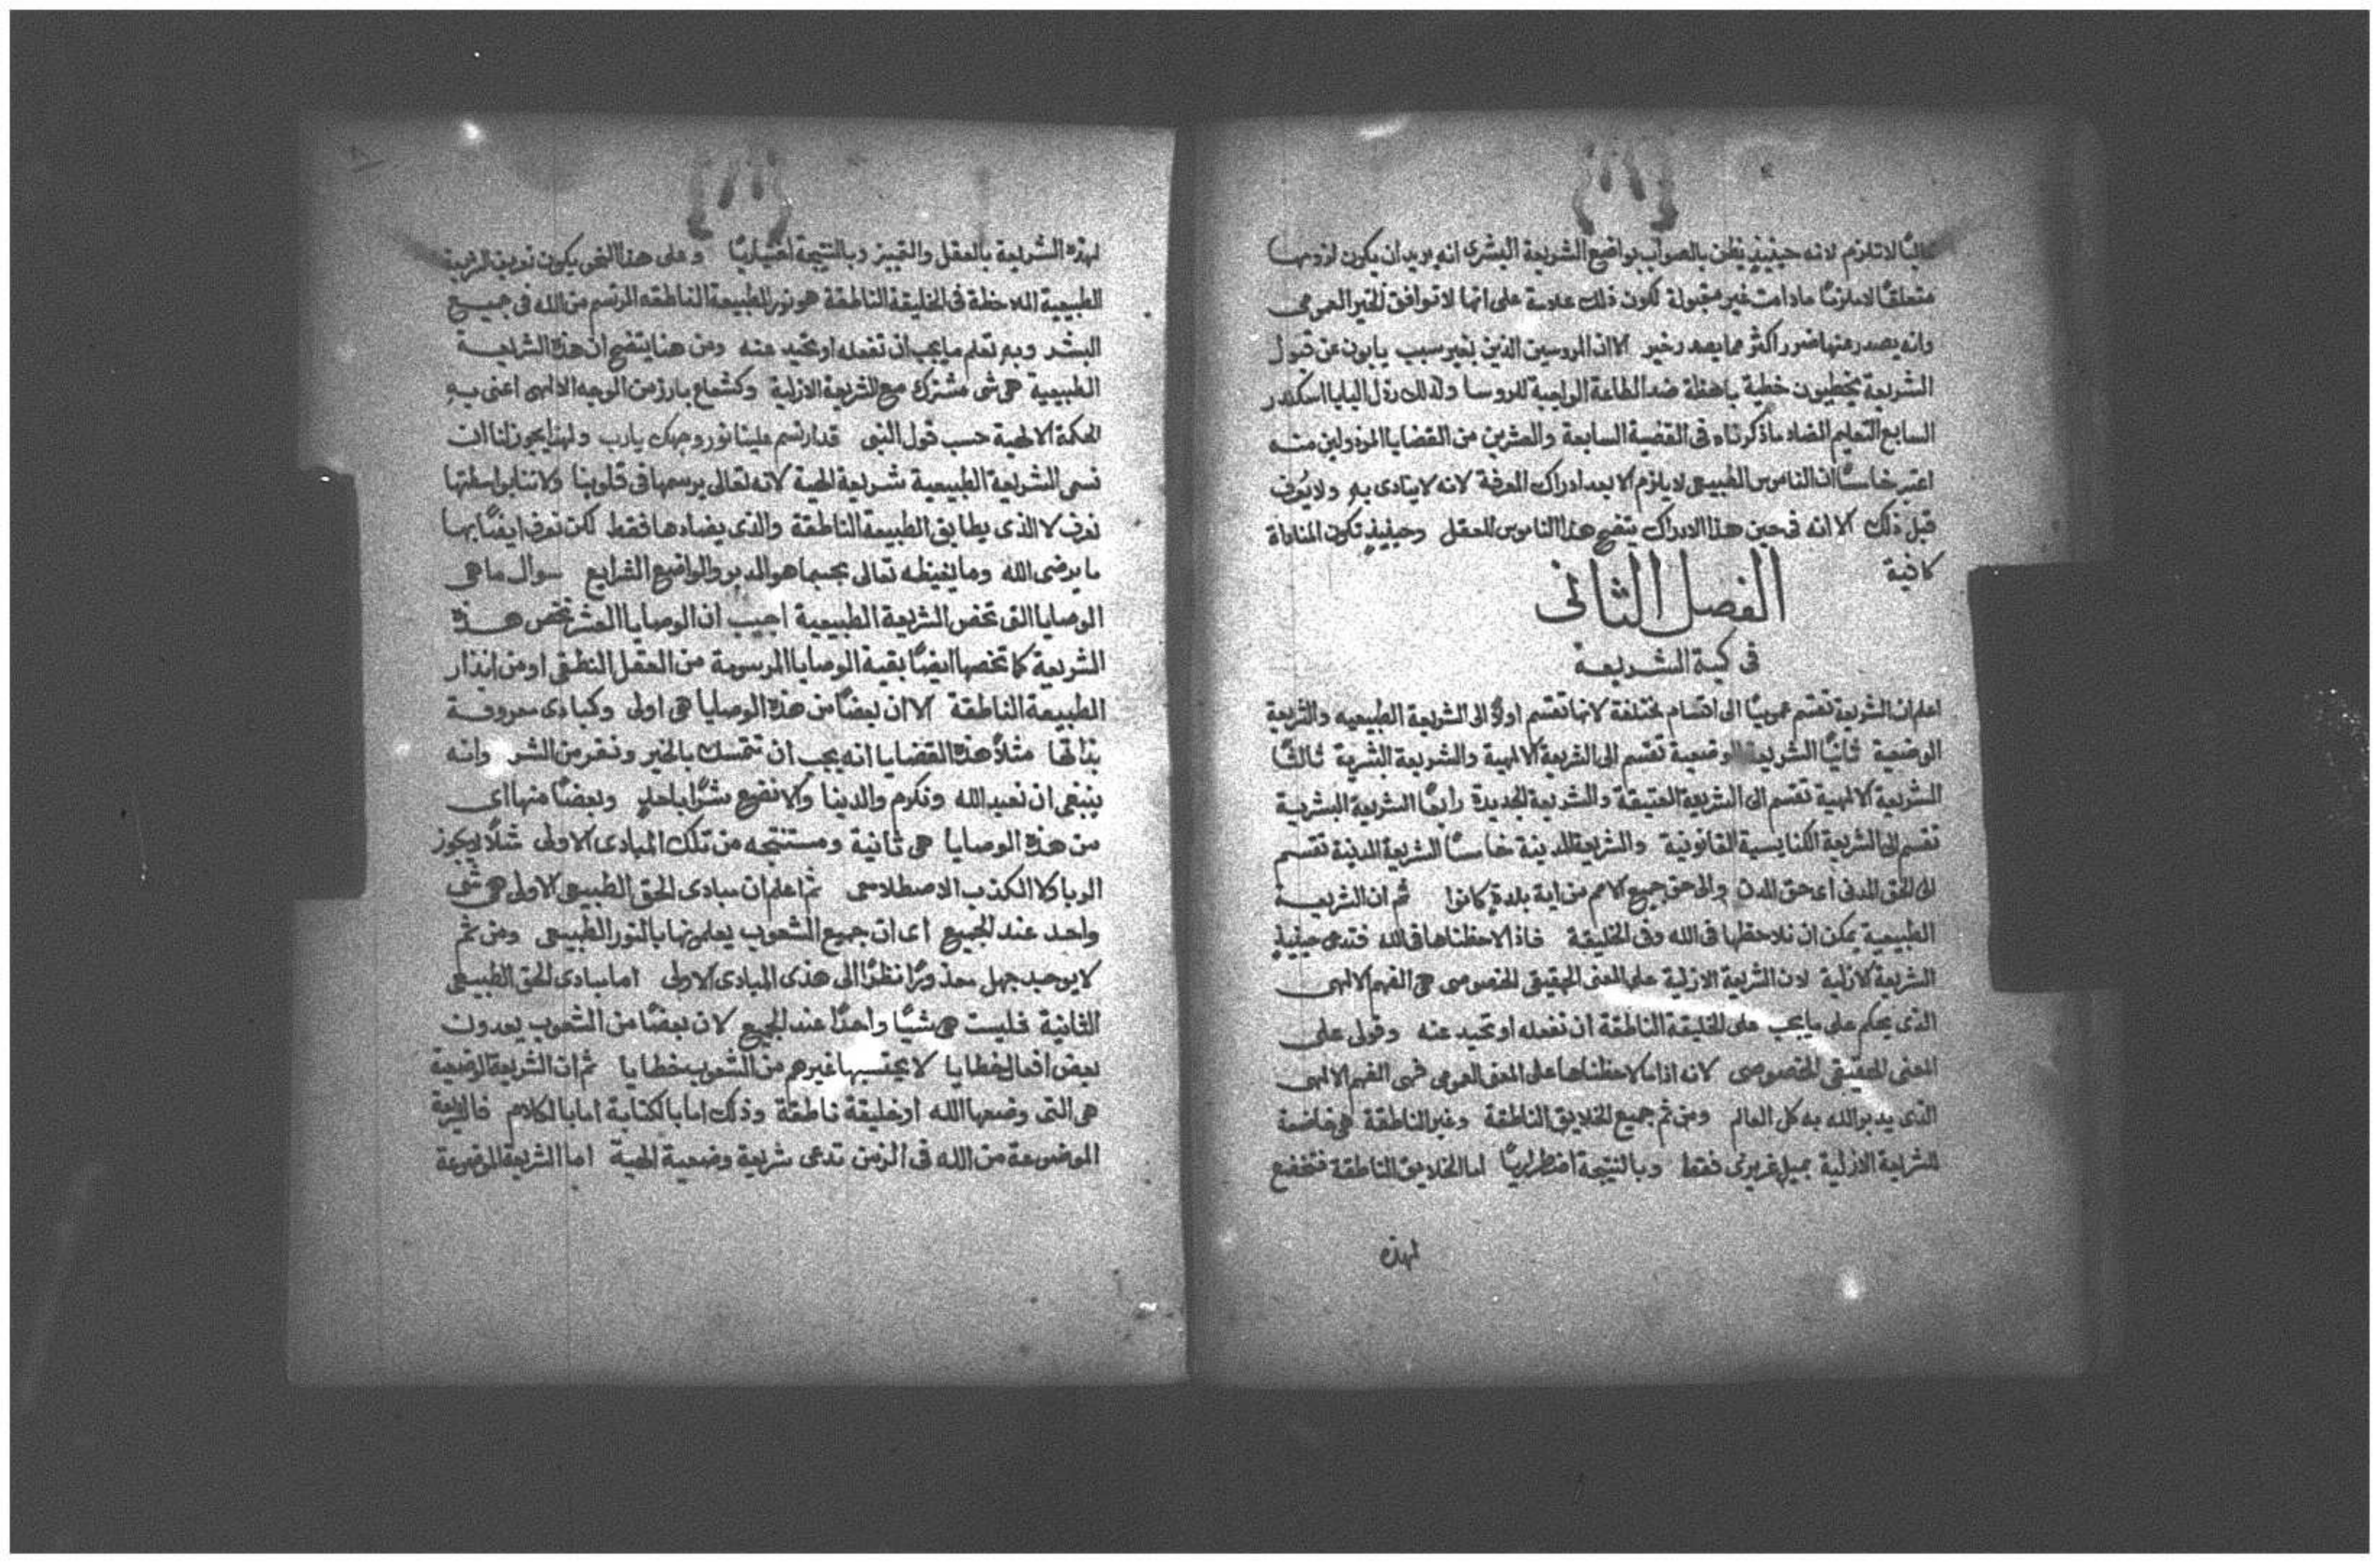 غالبًا لا تلزم لانه حينيذٍ يظن بالصواب بواضع الشريعة البشرى انه يريد ان يكون لزومها
متعلقًا مادامت غير مقبولة لكون ذلك علامة على انها لا توافق الخير العمومى
وانه يصدر عنها ضرر اكثر مما يصدر خير الا ان المروسين الذين بغير سبب يابون عن قبول
الشريعة يخطيون خطية باهظة ضد الطاعة الواجبة للروسا ولذلك رذل البابا اسكندر
السابع التعليم المضاد ما ذكرناه فى القضية السابعة والعشرين من القضايا المرذولين منه
اعتبر خامسًا ان الناموس الطبيعى لا يلزم الا بعد ادراك المعرفة لانه لا ينادى به ولا يُعرف
قبل ذلك الا انه فى حين هذا الادراك يتضح هذا الناموس للعقل وحينيذٍ تكون المناداة
كافية
الفصل الثانى
فى كمية الشريعة
اعلم ان الشريعة تقسم عموميًا الى اقسام مختلفة لانها تقسم اولاً الى الشريعة الطبيعيه والشريعة
الوضعية ثانيًا الشريعة الوضعية تقسم الى الشريعة الالهية والشريعة البشرية ثالثًا
الشريعة الالهية تقسم الى الشريعة العتيقة والشريعة الجديدة رابعًا الشريعة البشرية
تقسم الى الشريعة الكنايسية القانونية والشريعة المدينة خامسًا الشريعة المدنية تقسم
الى الحق المدنى اى حق المدن والى حق جميع الامم من اية بلدةٍ كانوا ثم ان الشريعة
الطبيعية يمكن ان نلاحظها فى الله وفى الخليقة فاذا لاحظناها فى الله فتدعى حينيذٍ
الشريعة الازلية لان الشريعة الازلية على المعنى الحقيقى الخصوصى هى الفهم الالهى
الذى يحكم على ما يجب على الخليقة الناطقة ان تفعله او تحيد عنه وقولى على
المعنى الحقيقى الخصوصى لانه اذا ما لاحظناها على المعنى العومى فهى الفهم الالهى
الذى يدبر الله به كل العالم ومن ثم جميع الخلايق الناطقة وغير الناطقة هى خاضعة
للشريعة الازلية بميل غريزى فقط وبالنتيجة اضطراريًا اما الخلايق الناطقة فتخضع
لهذه
لهذه الشريعة بالعقل والتمييز وبالنتيجة اختياريًا وعلى هذا النحو يكون تعريف الشريعة
الطبيعية الملاحظة فى الخليقة الناطقة هو نور الطبيعة الناطقه المرتسم من الله فى جميع
البشر وبه تعلم ما يجب ان تفعله او تحيد عنه ومن هنا يتضح ان هذه الشريعة
الطبيعية هى شى مشترك مع الشريعة الازلية وكشعاع بارز من الوجه الالهى اعنى به
الحكمة الالهية حسب قول النبى قد ارتسم علينا نور وجهك يارب ولهذا يجوز لنا ان
نسمى الشريعة الطبيعية شريعة الهية لانه تعالى يرسمها فى قلوبنا ولاننا بواسطتها
نعرف لا الذى يطابق الطبيعة الناطقة والذى يضادها فقط لكن نعرف ايضًا بها
ما يرضى الله وما يغيظه تعالى بحسبما هو المدبر والواضع الشرايع سوال ما هى
الوصايا التى تخص الشريعة الطبيعية اجيب ان الوصايا العشر تخص هذه
الشريعة كما تخصها ايضًا بقية الوصايا المرسومة من العقل النطقى او من انذار
الطبيعة الناطقة الا ان بعضًا من هذه الوصايا هى اولى وكمبادى معروفة
بذاتها مثلاً هذه القضايا انه يجب ان نتمسك بالخير ونفر من الشر وانه
ينبغى ان نعبد الله ونكرم والدينا والا نضع شرًا باحدٍ وبعضًا منها اى
من هذه الوصايا هى ثانية ومستنتجه من تلك المبادى الاولى مثلاً لا يجوز
الربا ولا الكذب الاصطلاحى ثم اعلم ان مبادى الحق الطبيعى الاولى هى شى
واحد عند الجميع اى ان جميع الشعوب يعلمونها بالنور الطبيعى ومن ثم
لا يوجد جهل معذورًا نظرًا الى هذى المبادى الاولى اما مبادى الحق الطبيعى
الثانية فليست هى شيًا واحدًا عند الجميع لان بعضًا من الشعوب يعدون
بعض افعال خطايا لا يحتسبها غيرهم من الشعوب خطايا ثم ان الشريعة الوضعية
هى التى وضعها الله او خليقة ناطقة وذلك اما بالكتابة اما بالكلام فالشريعة
الموضوعة من الله فى الزمن تدعى شريعة وضعية الهية اما الشريعة الموضوعة